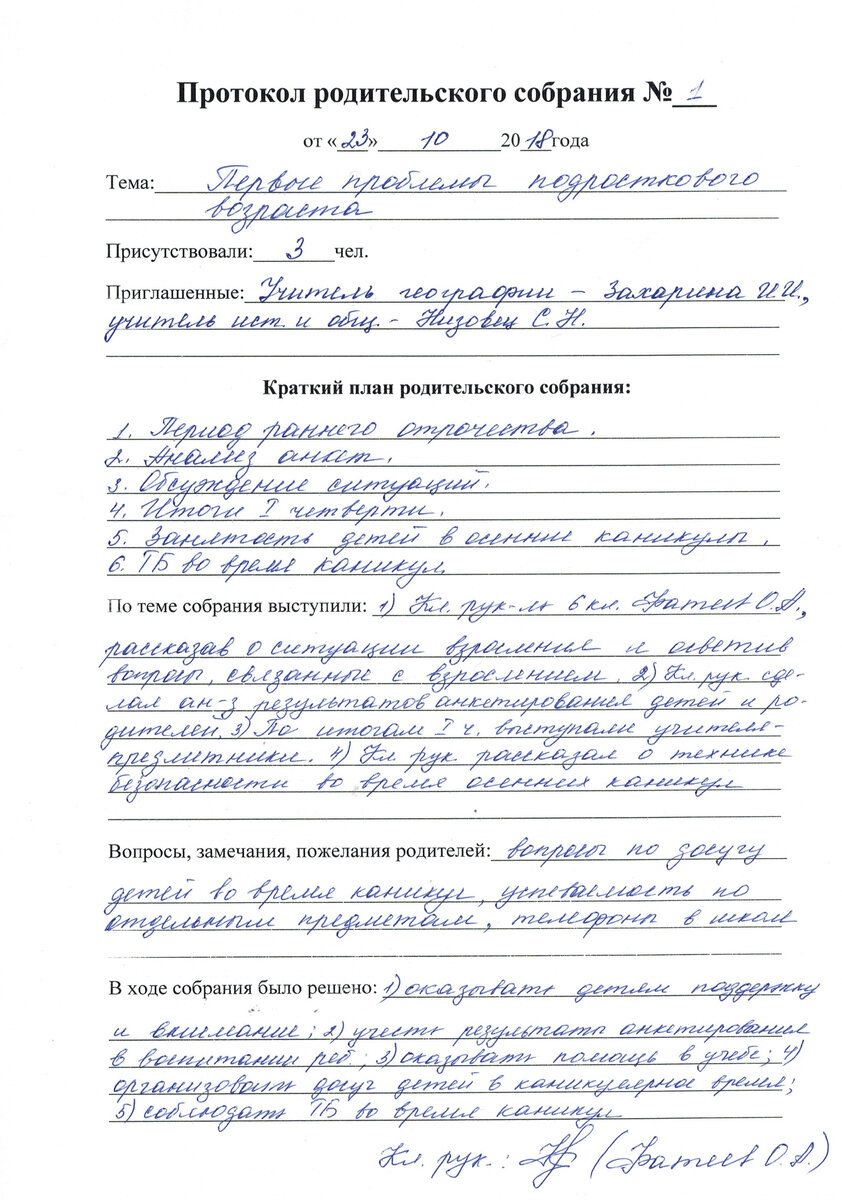 Протокол родительского собрания № 1
от «23» 10 2018 года
Тема: Первые проблемы подросткового
возраста
Присутствовали: 3 чел.
Приглашенные: Учитель географии – Захарина И.И.,
учитель ист. и общ. – Низовец С.Н.
Краткий план родительского собрания:
1. Период раннего отрочества.
2. Анализ анкет.
3. Обсуждение ситуаций.
4. Итоги I четверти.
5. Занятость детей в осенние каникулы.
6. ТБ во время каникул
По теме собрания выступили: 1) Кл. рук-ль 6 кл. Фатеев О.А.,
рассказав о ситуации взросления и осветив
вопросы, связанные с взрослением. 2) Кл. рук. сде-
лал ан-з результатов анкетирования детей и ро-
дителей. 3) По итогам I ч. выступали учителя-
предметники. 4) Кл. рук. рассказал о технике
безопасности во время осенних каникул
Вопросы, замечания, пожелания родителей: вопросы по досугу
детей во время каникул, успеваемость по
отдельным предметам, телефоны в школе
В ходе собрания было решено: 1) оказывать детям поддержку
и внимание; 2) учесть результаты анкетирования
в воспитании реб.; 3) оказывать помощь в учебе; 4)
организовать досуг детей в каникулярное время;
5) соблюдать ТБ во время каникул
Кл. рук.: (Фатеев О.А.)